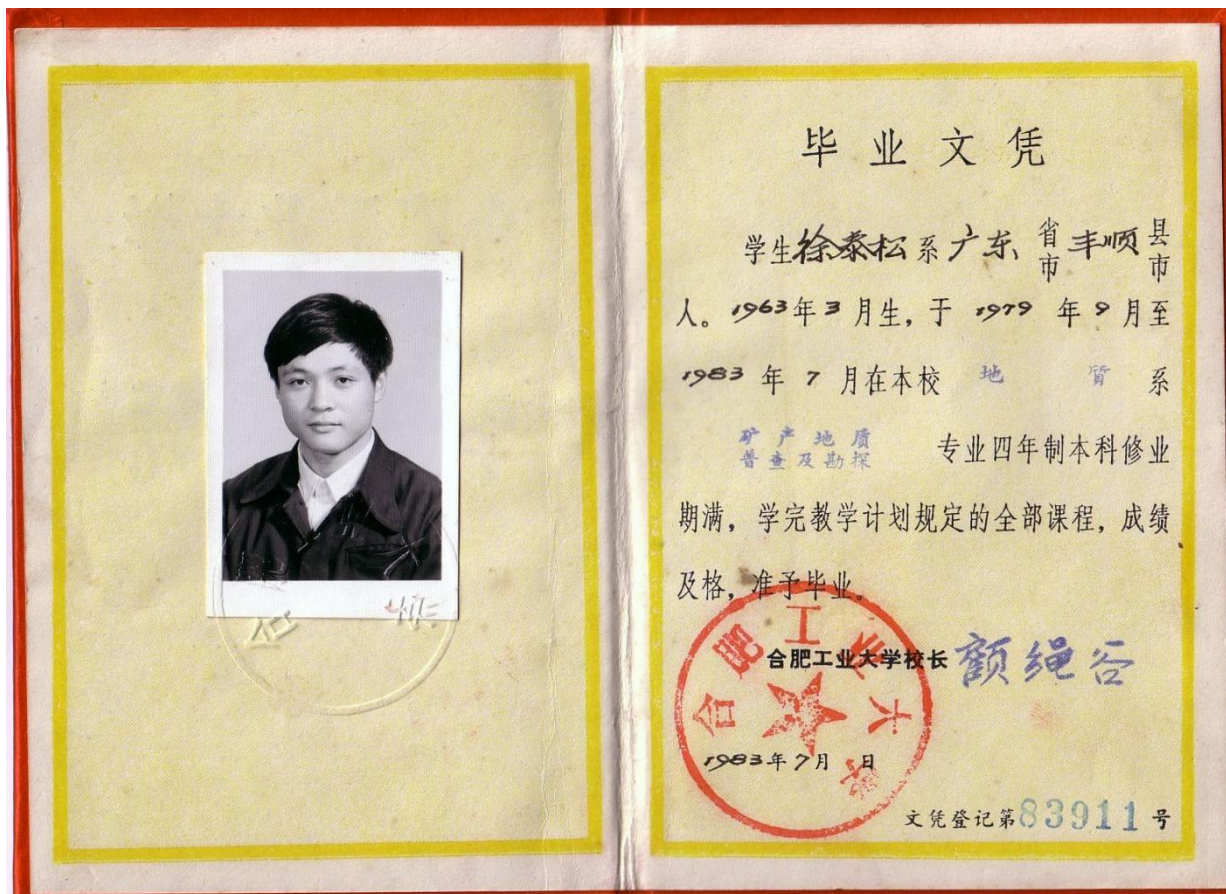 毕业文凭
学生徐泰松系广东省市丰顺县市
人。1963年3月生,于1979年9月至
1983年7月在本校地质系
矿产地质
普查及勘探专业四年制本科修业
期满,学完教学计划规定的全部课程,成绩
及格,准予毕业。
合肥工业大学校长 顾绳谷
合肥工业大学
1983年7月 日
文凭登记第83911号